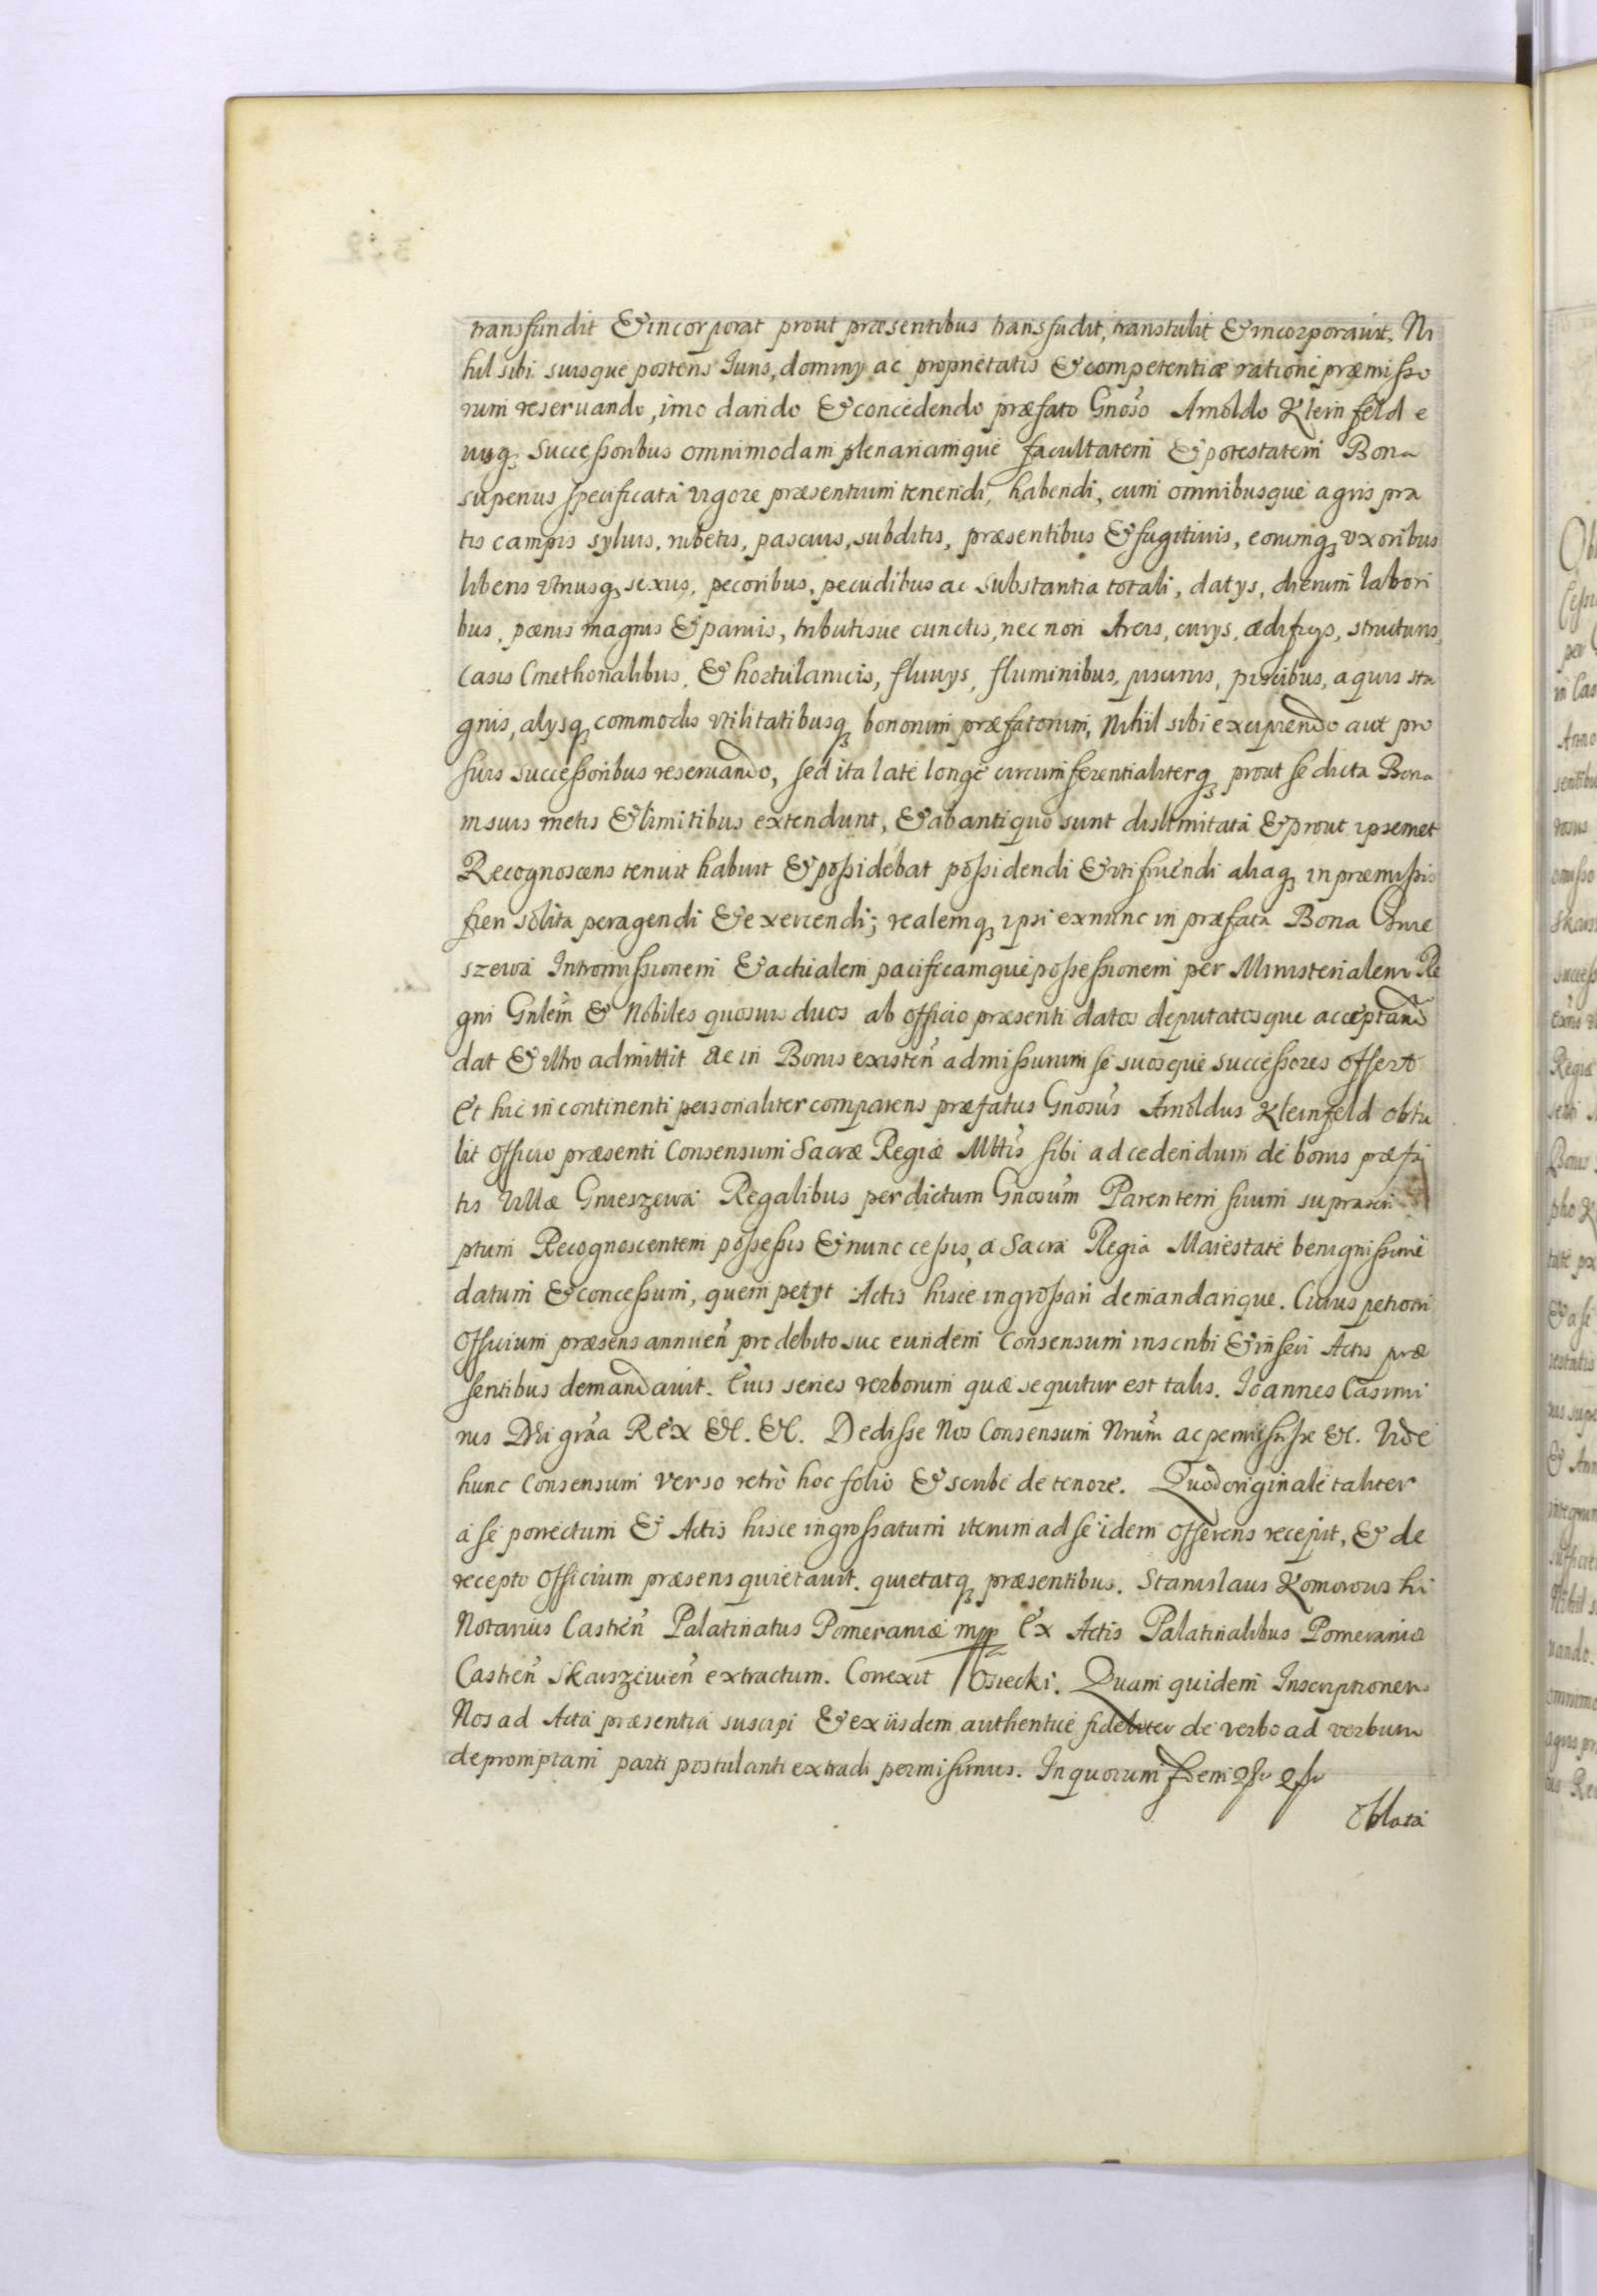 transfundit & incorporat prout præsentibus transfudit, transtulit & incorporauit. Ni
hil sibi suisque posteris Iuris, dominy ac proprietatis & competentiæ ratione præmisso
rum reseruando, imo dando & concedendo præfato Gnoso Arnoldo Kleinfeld e
iusq3 successoribus omnimodam plenariamque facultatem & potestatem Bona
superius specificata vigore præsentium tenendi, habendi, cum omnibusque agris pra
tis campis syluis, rubetis, pascuis, subditis, præsentibus & fugitiuis, eorumq3 vxoribus
liberis vtriusq3 sexus, pecoribus, pecudibus ac substantia totali, datys, dierum labori
bus, pœnis magnis & paruis, tributisue cunctis, nec non Areis, curys, ædificys, structuris,
Casis Cmethonalibus, & hortulanicis, fluuys, fluminibus, piscinis, piscibus, aquis sta
gnis, alysq3 commodis vtilitatibusq3 bonorum præfatorum, Nihil sibi excipiendo aut pro
suis successoribus reseruando, sed ita late longe circumferentialiterq3 prout se dicta Bona
in suis metis & limitibus extendunt, & ab antiquo sunt dislimitata & prout ipsemet
Recognoscens tenuit habuit & possidebat possidendi & vtifruendi aliaq3 in præmissis
fieri solita peragendi & exercendi; realemq3 ipsi exnunc in præfata Bona Gnie
szewa Intromissionem & actualem pacificamque possessionem per Ministerialem Re
gni Gnlem & Nobiles quosuis duos ab officio præsenti datos deputatosque acceptand
dat & vltro admittit ac in Bonis existen admissurum se suosque successores offert
Et hic in continenti personaliter comparens præfatus Gnosus Arnoldus Kleinfeld obtu
lit officio præsenti Consensum Sacræ Regiæ Mttis sibi ad cedendum de bonis præfa
tis Villæ Gnieszewa Regalibus per dictum Gnosum Parentem suum suprascri
ptum Recognoscentem possessis & nunc cessis, a Sacra Regia Maiestate benignissime
datum & concessum, quem petyt Actis hisce ingrossari demandarique. Cuius petitioni
Officium præsens annuen pro debito suo eundem Consensum inscribi & inseri Actis præ
sentibus demandauit. Cuius series verborum quæ sequitur est talis. Ioannes Casimi
rus Dei gra Rex &c. &c. Dedisse Nos Consensum Nrum ac permisisse &c. Vide
hunc Consensum verso retro hoc folio & scribe de tenore. Quod originale taliter
a se porrectum & Actis hisce ingrossatum iterum ad se idem offerens recepit, & de
recepto Officium præsens quietauit. quietatq3 præsentibus. Stanislaus Komorowski
Notarius Castren Palatinatus Pomeraniæ mpp Ex Actis Palatinalibus Pomeraniæ
Castren Skarszewien extractum. Correxit Osiecki. Quam quidem Inscriptionem
Nos ad Acta præsentia suscipi & ex iisdem authentice fideliter de verbo ad verbum
depromptam parti postulanti extradi permisimus. In quorum fidem
Oblata